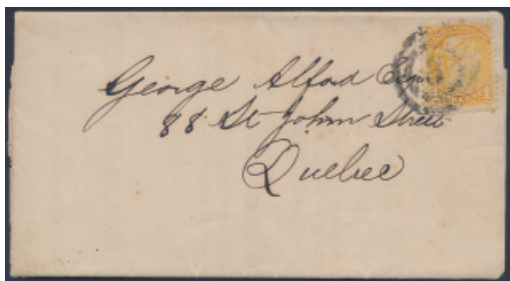 George Alford Esqr
88 St John Street
Quebec
1